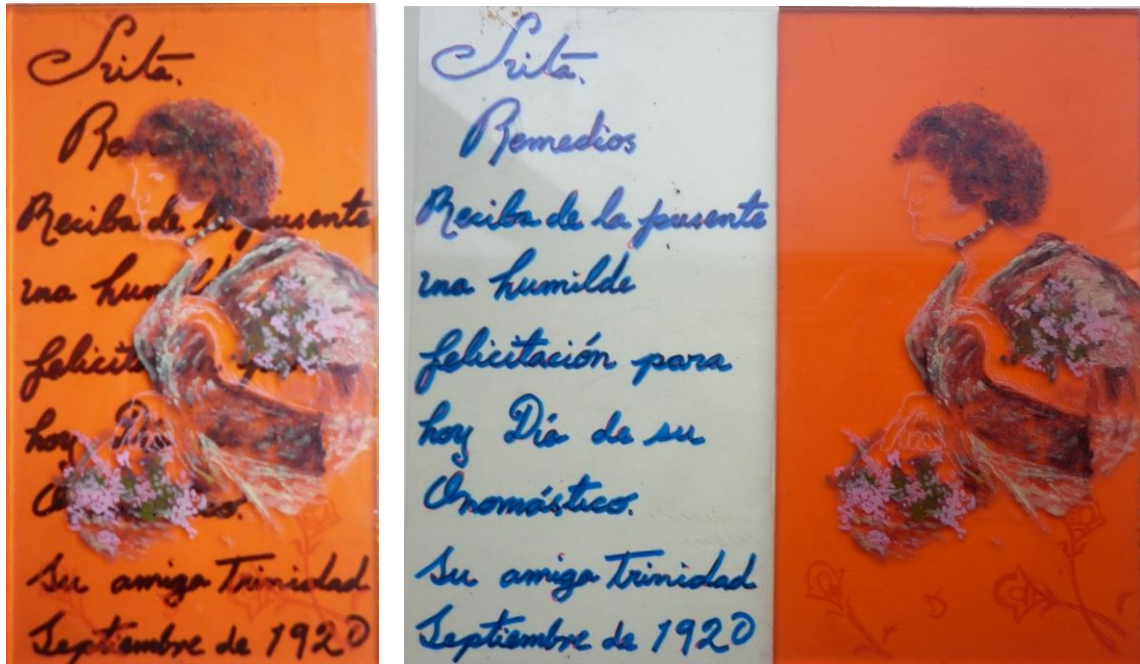 Srita.
Reciba de la presente
una
hoy Día
Su amiga Trinidad
Septiembre de 1920
Srita.
Remedios
Reciba de la presente
una humilde
felicitación para
hoy Día de su
Onomástico.
Su amiga Trinidad
Septiembre de 1920